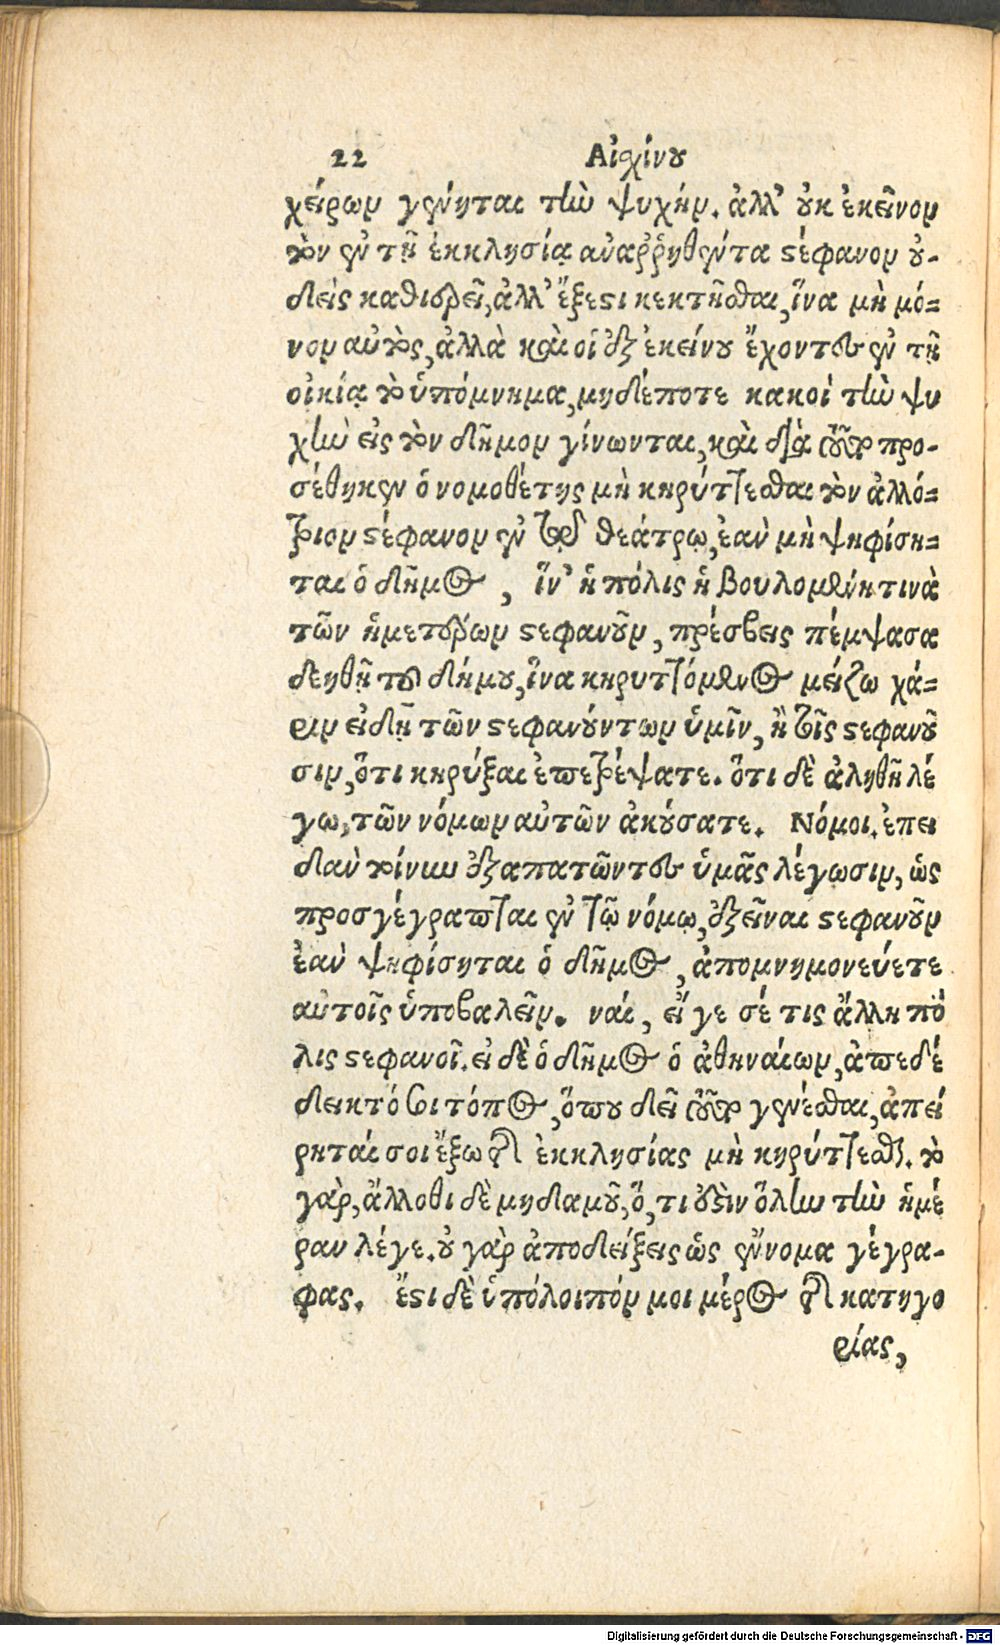 22 Αἰσχίνου
χείρων γένηται τὴν ψυχήν. ἀλλ’ οὐκ ἐκεῖνον
τὸν ἐν τῇ ἐκκλησίᾳ ἀναῤῥηθέντα στέφανον οὐ-
δεὶς καθιεροῖ, ἀλλ’ ἔξεστι κεκτῆσθαι, ἵνα μὴ μό=
νον αὐτὸς, ἀλλὰ καὶ οἱ ἐξ ἐκείνου ἔχοντες ἐν τῇ
οἰκίᾳ τὸ ὑπόμνημα, μηδέποτε κακοὶ τὴν ψυ
χὴν εἰς τὸν δῆμον γίνωνται, καὶ διὰ τοῦτο προ-
σέθηκεν ὁ νομοθέτης μὴ κηρύττεσθαι τὸν ἀλλό=
τριον στέφανον ἐν τῷ θεάτρῳ, ἐὰν μὴ ψηφίση=
ται ὁ δῆμος, ἵν’ ἡ πόλις ἡ βουλομένη τινὰ
τῶν ἡμετέρων στεφανοῦν, πρέσβεις πέμψασα
δεηθῇ τοῦ δήμου, ἵνα κηρυττόμενος μείζω χά=
ριν εἰδῇ τῶν στεφανούντων ὑμῖν, ἢ τοῖς στεφανοῦ
σιν, ὅτι κηρύξαι ἐπετρέψατε. ὅτι δὲ ἀληθῆ λέ
γω, τῶν νόμων αὐτῶν ἀκούσατε. Νόμοι. ἐπει
δὰν τοίνυν ἐξαπατῶντες ὑμᾶς λέγωσιν, ὡς
προσγέγραπται ἐν τῷ νόμῳ, ἐξεῖναι στεφανοῦν
ἐὰν ψηφίσηται ὁ δῆμος, ἀπομνημονεύετε
αὐτοῖς ὑποβαλεῖν. ναί, εἴ γε σέ τις ἄλλη πό
λις στεφανοῖ. εἰ δὲ ὁ δῆμος ὁ ἀθηναίων, ἀπεδέ
δεικτό σοι τόπος, ὅπου δεῖ τοῦτο γενέσθαι, ἀπεί
ρηταί σοι ἔξω τῆς ἐκκλησίας μὴ κηρύττεσθαι. τὸ
γὰρ, ἄλλοθι δὲ μηδαμοῦ, ὅ, τι οὐδὲν ὅλην τὴν ἡμέ
ραν λέγε. οὐ γὰρ ἀποδείξεις ὡς ἔννομα γέγρα-
φας. ἔστι δὲ ὑπόλοιπόν μοι μέρος τῆς κατηγο
ρίας,
Digitalisierung gefördert durch die Deutsche Forschungsgemeinschaft - DFG